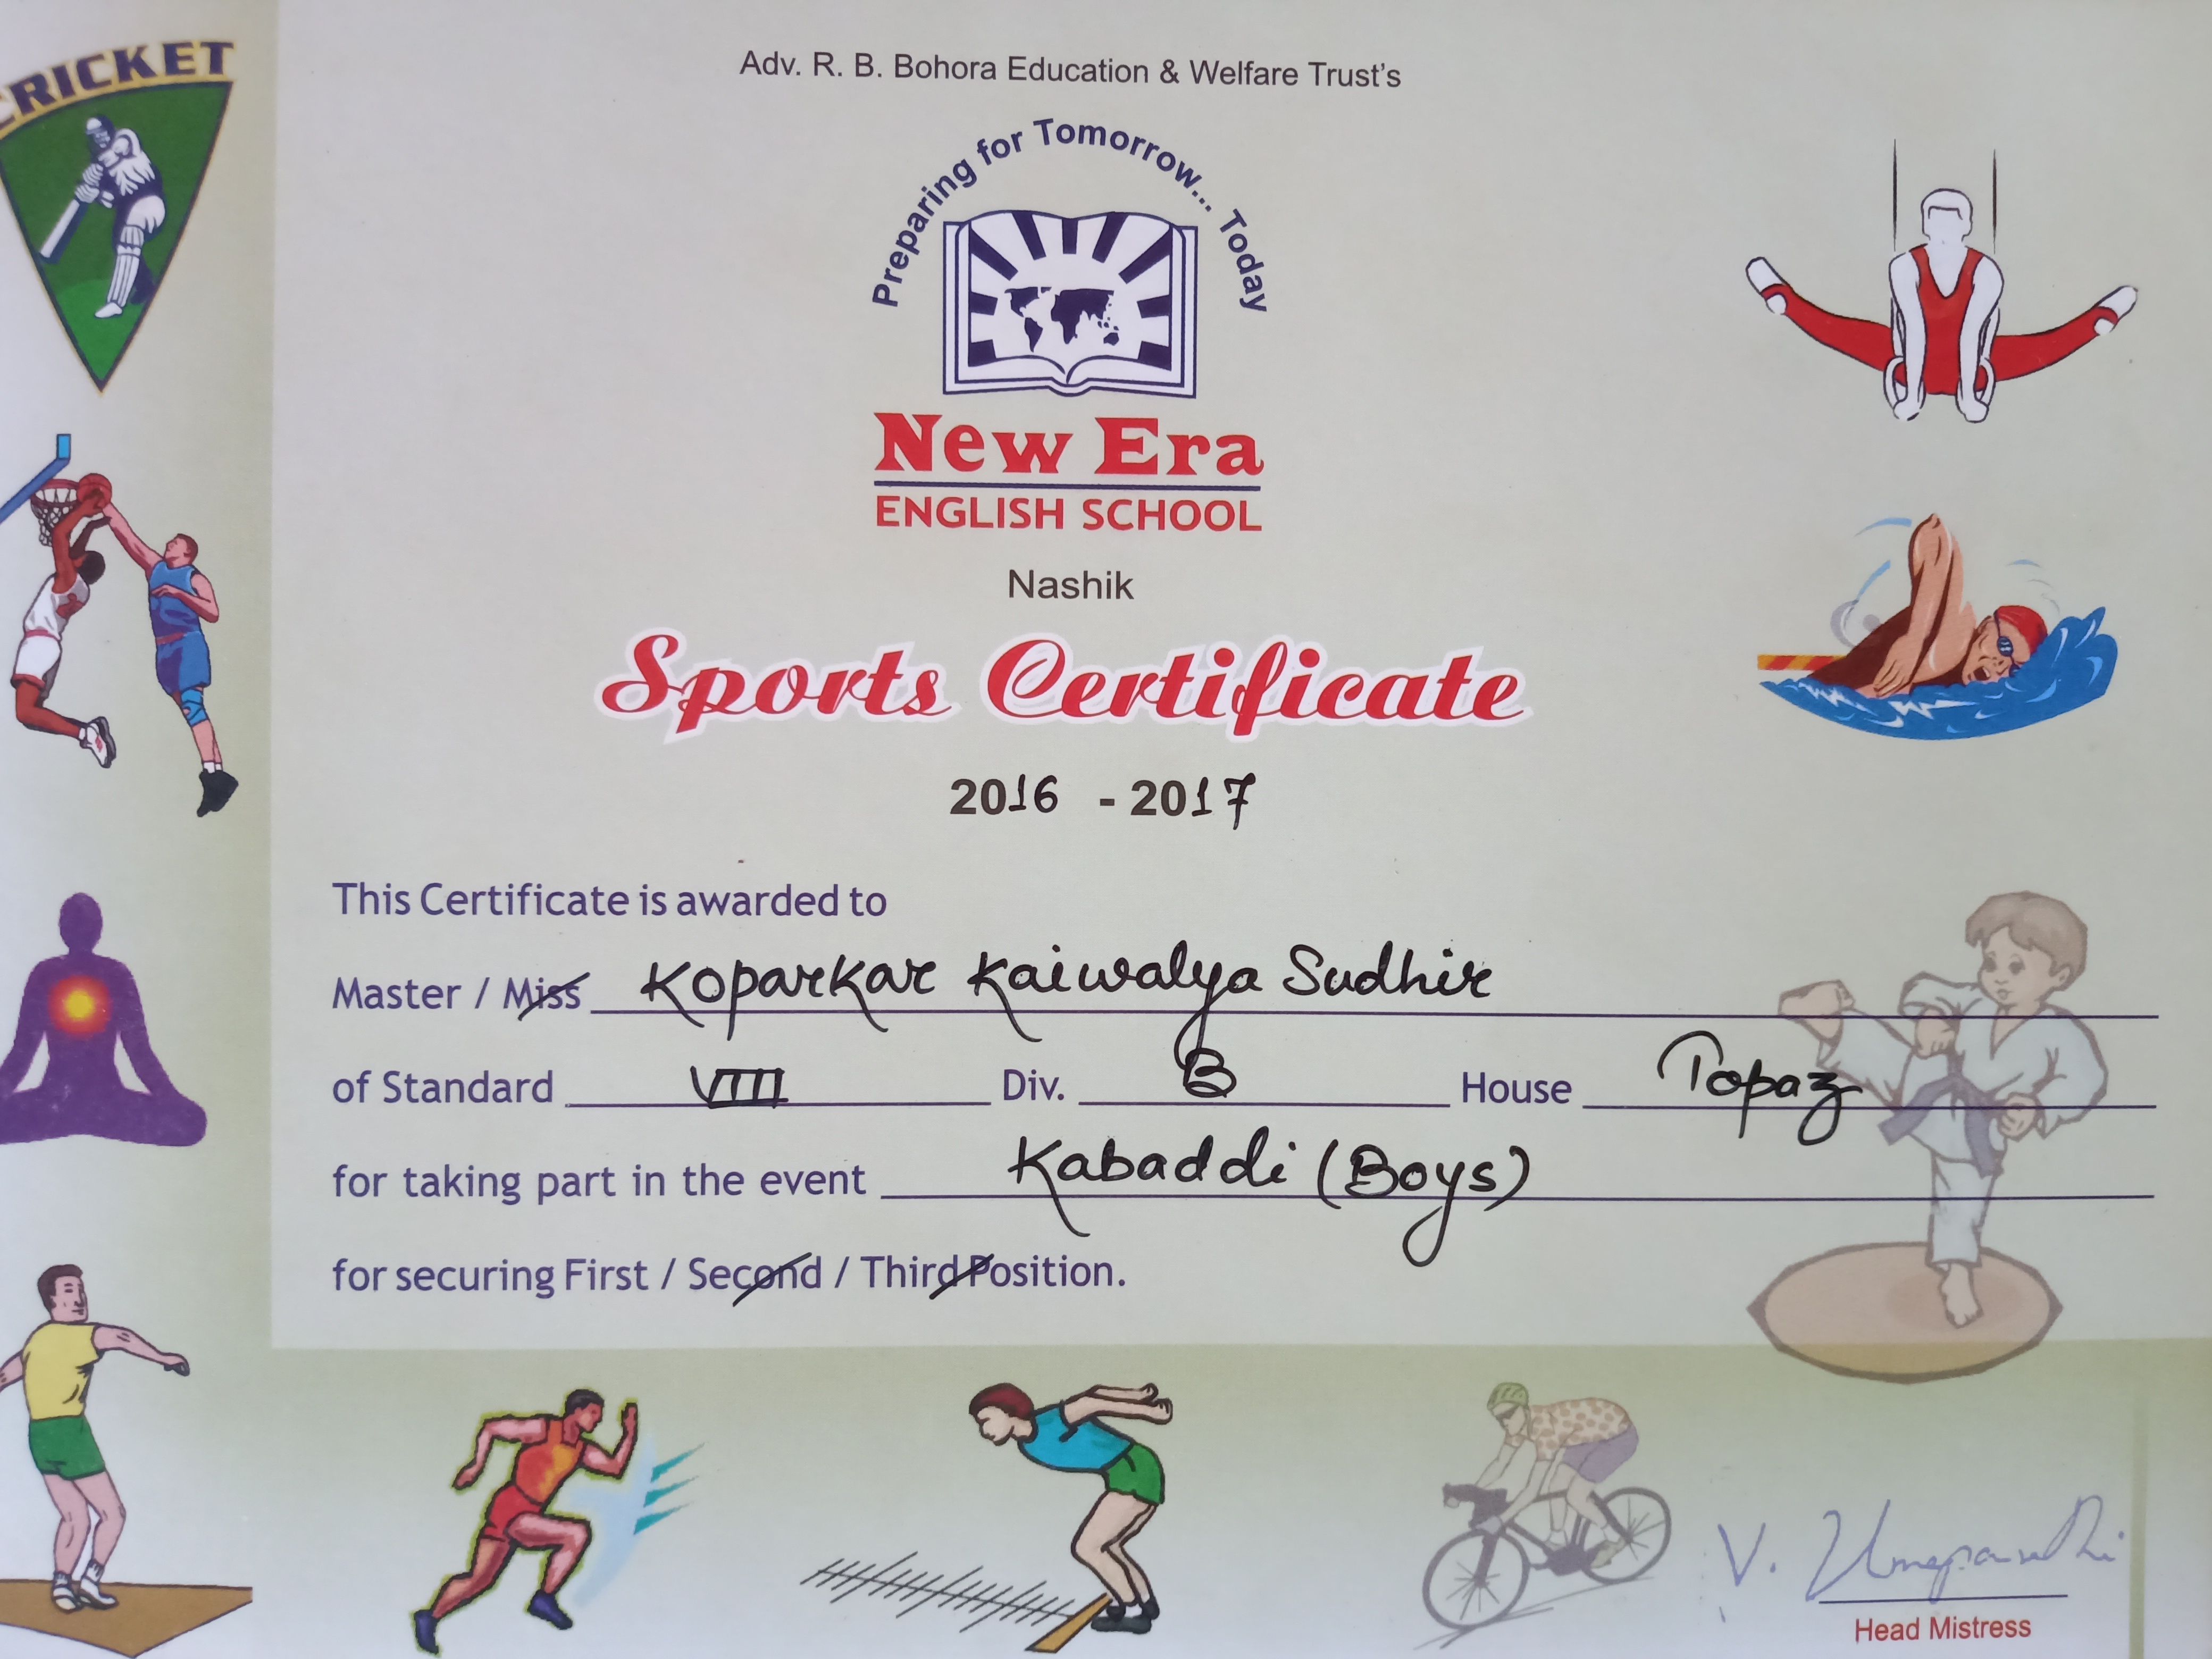 CRICKET
Adv. R. B. Bohora Education & Welfare Trust's
Preparing for Tomorrow... Today
New Era
ENGLISH SCHOOL
Nashik
Sports Certificate
2016 - 2017
This Certificate is awarded to
Master / Miss Koparkar Kaiwalya Sudhir
of Standard VIII Div. B House Topaz
for taking part in the event Kabaddi (Boys)
for securing First / Second / Third Position.
V.
Head Mistress